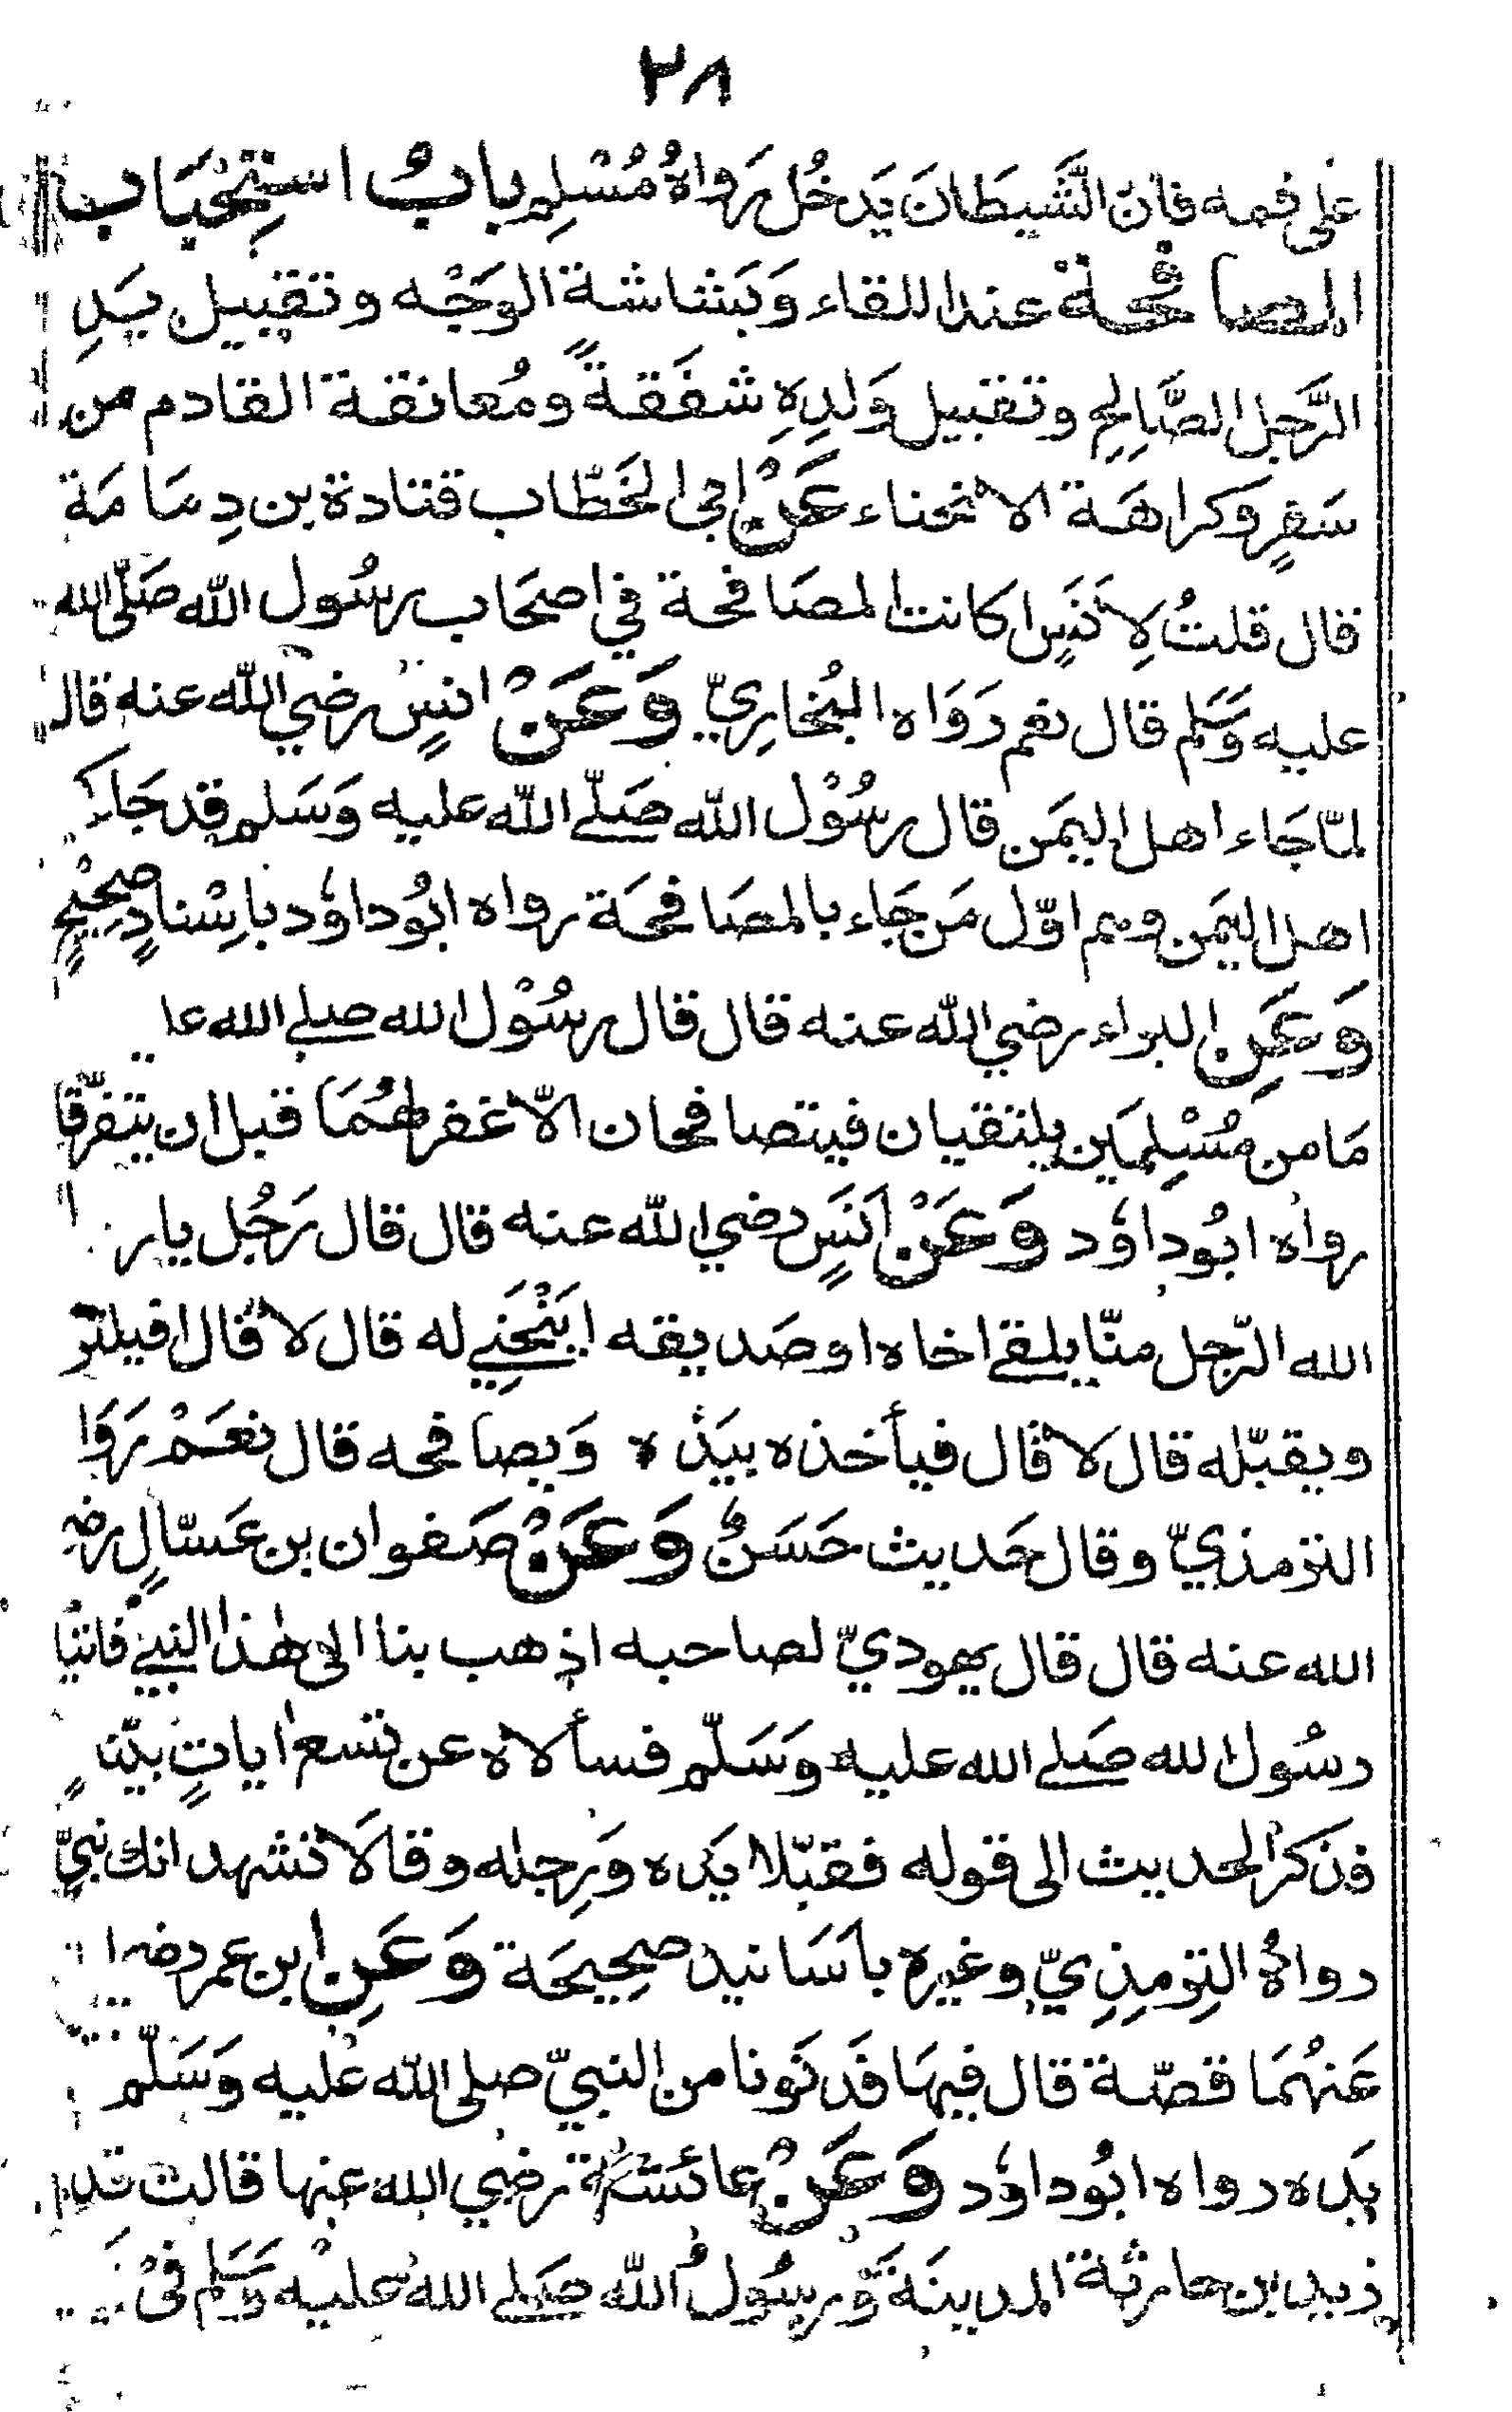 ٢٨
على فمه فانّ الشَّيطانَ يَدخُل رَواهُ مُسْلِم بابُ استِحْبَاب
المصافحة عند اللقاء وَبَشاشةِ الوَجْه وتقبيل يَدِ
الرَّجل الصَّالِحِ وتقبيل وَلدِهِ شفَقةً ومُعانقة القادم من
سَفرٍ وكراهَة الانحناء عَنْ ابى الخَطّاب قتادة بن دِعامَة
قال قلتُ لِأنَسٍ ا كانت المصَافحة في اصحَاب رسُول الله صَلّى الله
عليه وَسَلم قال نعم رَوَاه البُخارِيّ وَعَنْ انسٍ رضي الله عنه قال
لمّا جَاء اهل اليمَن قال رسُوْل الله صَلّے الله عليه وَسَلم قد جَاءكم
اهل اليمَن وهم اوّل مَن جَاء بالمصَافحَة رواه ابُوداؤد باِسْنادٍ صَحِيْحٍ
وَعَنِ البراء رضي الله عنه قال قال رسُوْل الله صلے الله
مَا من مُسْلِمَين يلتقيان فيتصافحان الّا غفر لهُمَا قبل ان يتفرّقا
رواه ابُوداؤد وَعَنْ انَسٍ رضي الله عنه قال قال رَجُل يا
الله الرّجل منّا يلقے اخاه او صَديقه اَيَنْحَنِي له قال لا قال افيلتز
ويقبّله قال لا قال فيأخذه بيَدِه وَيصافحه قال نعَمْ رَوَا
الترمذيّ وقال حَديث حَسَنٌ وَعَنْ صَفوان بن عَسّالٍ رضي
الله عنه قال قال يهوديّ لصاحبه اذهب بنا الى هٰذا النبيّ فاتيا
رسُول الله صَلے الله عليه وَسَلّم فسألاه عن تسع اٰياتٍ بيّنٍ
فذكر الحديث الى قوله فقبّلا يَده وَرِجله وقالَا نشهد انك نبيّ
رواهُ التِرْمِذِيّ وغيره باَسَانيد صحِيحَة وَعَنِ ابن عمر رضي
عَنهُمَا قصّة قال فيهَا فَدَنَونا من النبيّ صلى الله عليه وَسَلّم
يَده رواه ابُوداؤد وَعَنْ عائشة رضي الله عنها قالت قدم
زيد بن حارثة المدينَة وَرسُولُ الله صَلے الله عليه وَسَلم فى